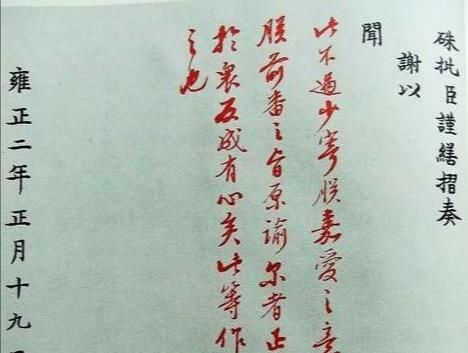 硃批臣謹繕摺奏
謝以
聞
此不過少寄朕嘉愛之意
朕前番之旨原諭尔者正
於衷反成有心矣此等作
之也
雍正二年正月十九